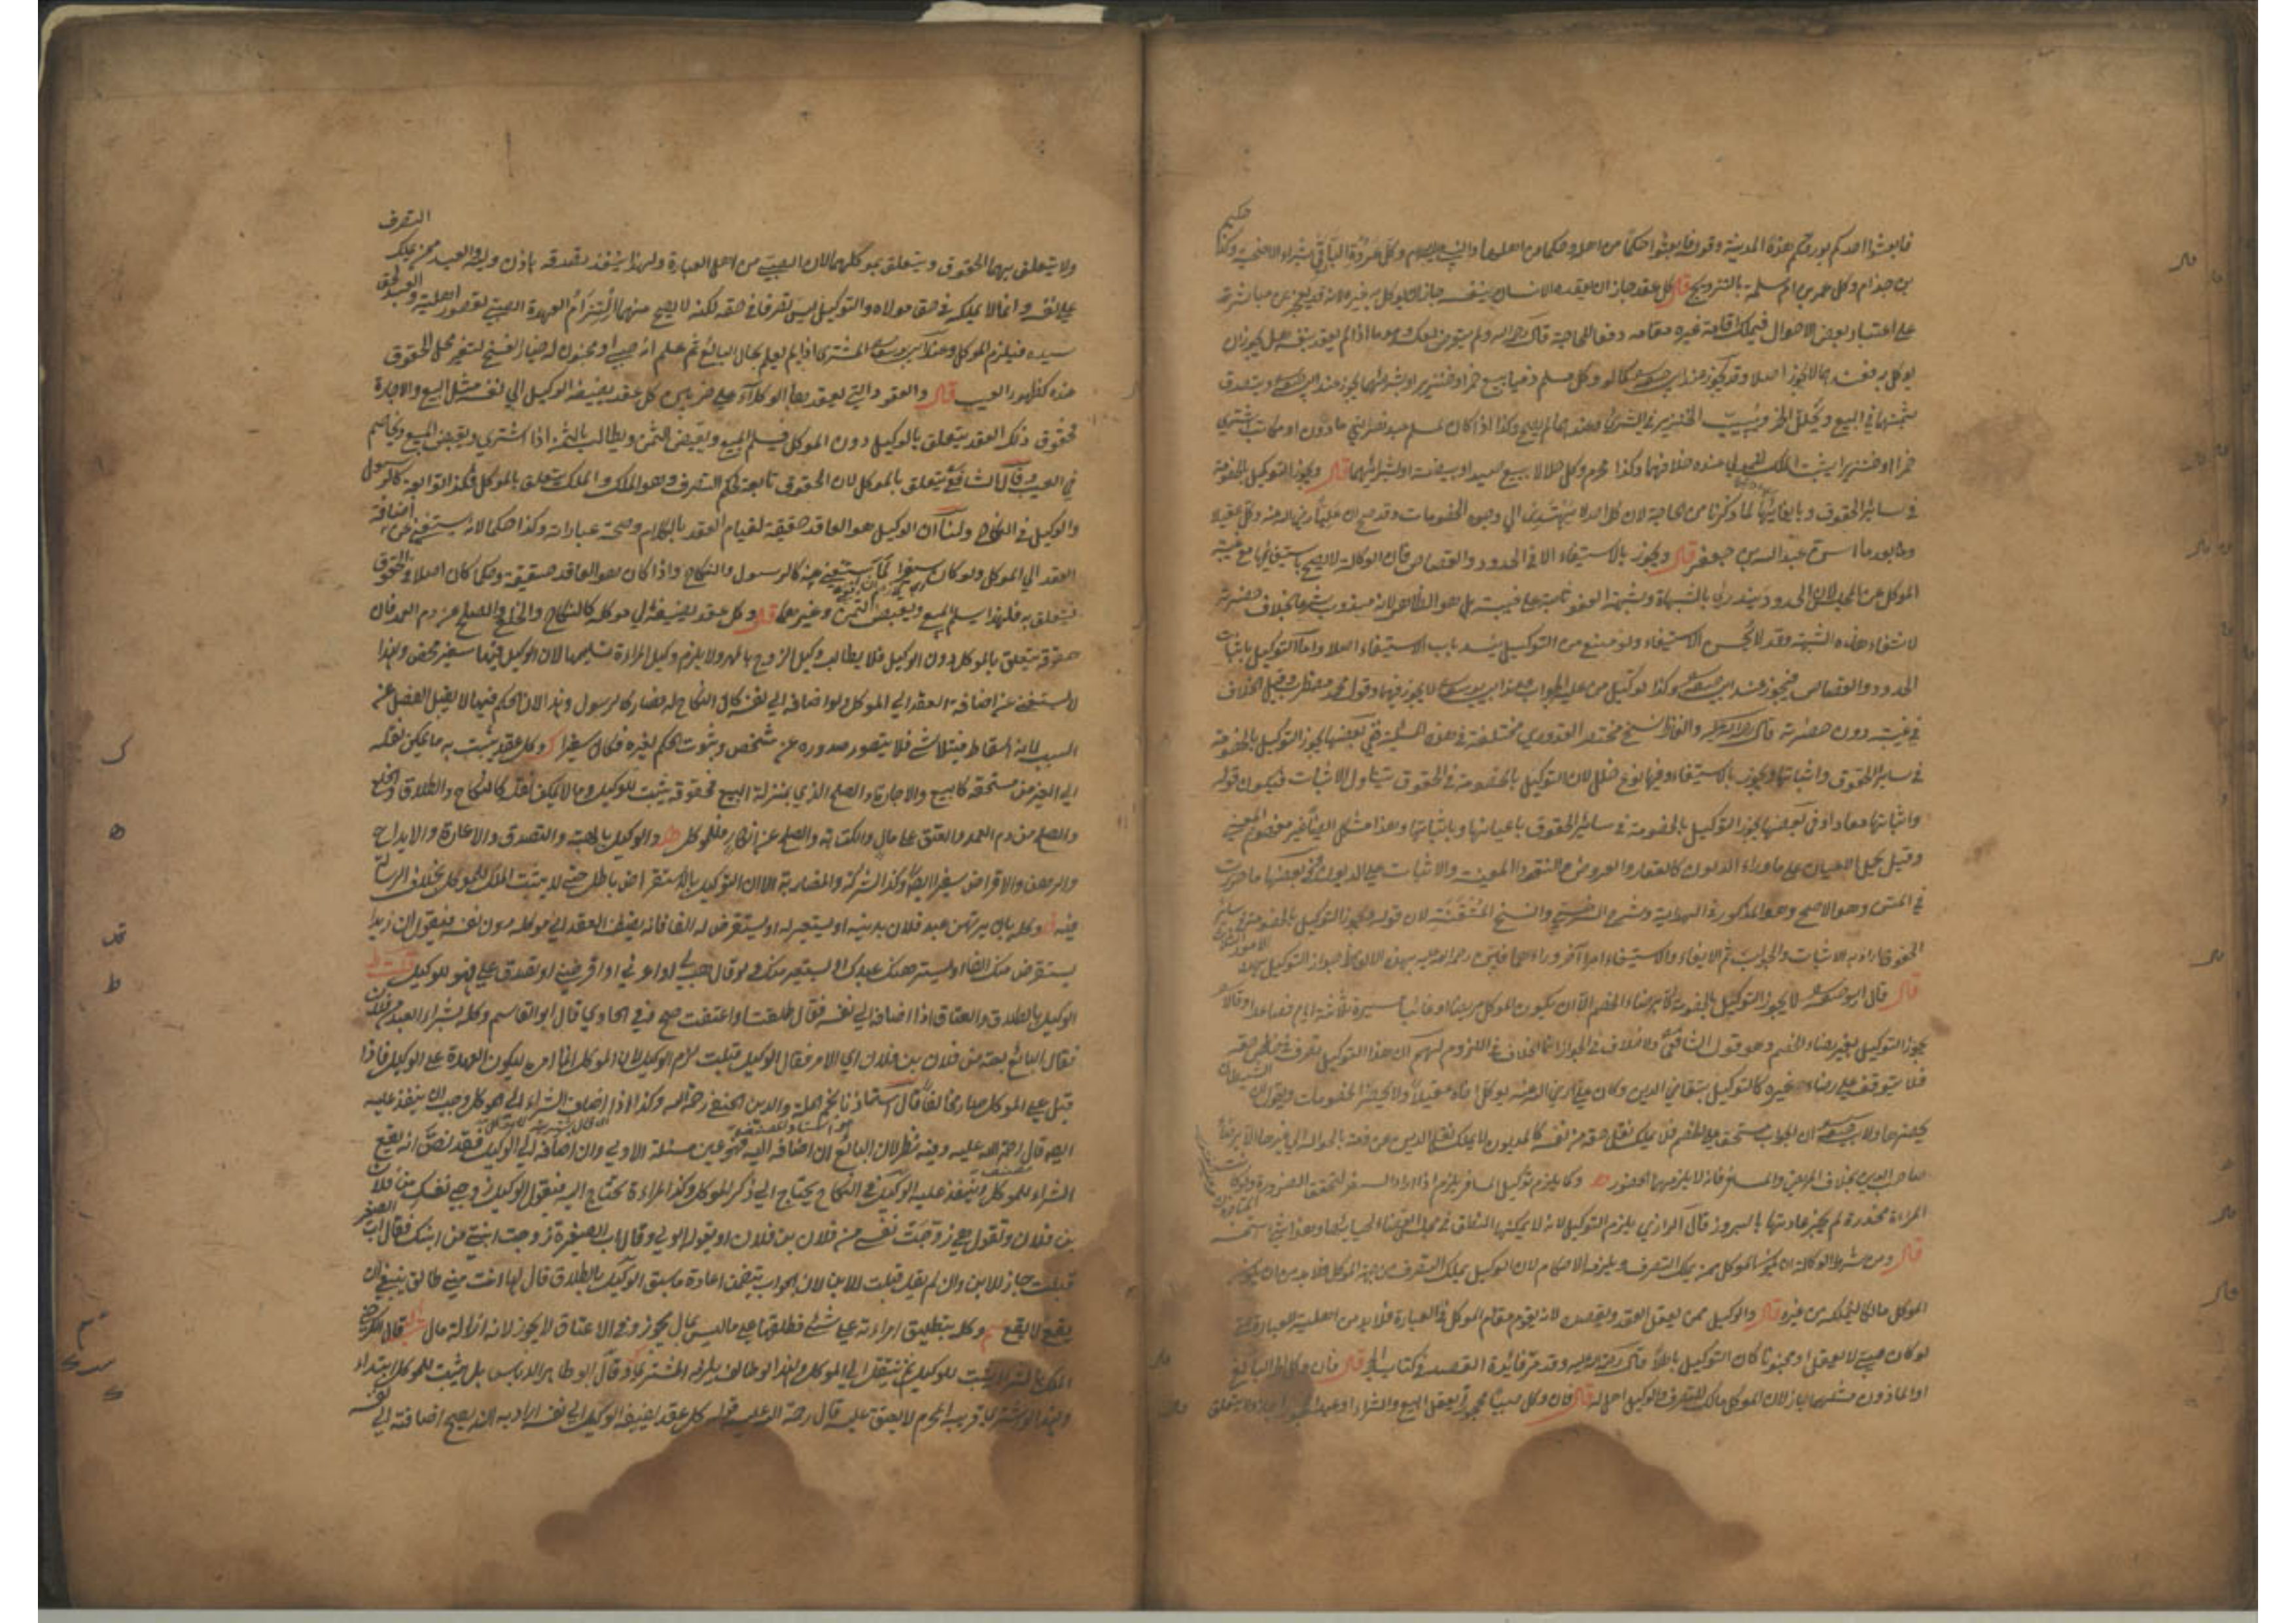 فابعثوا احدكم بورقكم هذه المدينة وقوله فابعثوا حكما من اهله وحكما من اهلها والنبي عليه السلام وكل عروة البارقي بشراء الاضحية وكذا حكيم
بن حزام وكل عمر بن ام سلمة بالتزويج قال كل عقد جاز ان يعقده الانسان بنفسه جاز ان يوكل به غيره لانه قد يعجز عن مباشرته
على اعتبار بعض الاحوال فيملك اقامة غيره مقامه دفعا للحاجة قال رحمه الله ولم يتعرض لعكسه وهو ما اذا لم يعقد بنفسه هل يجوز ان
يوكل به فعندهما لا يجوز اصلا وقد يجوز عند ابي حنيفة كما لو وكل مسلم ذميا ببيع خمر او خنزير او بشرائهما يجوز عند ابي حنيفة ويتصدق
بثمنها في البيع ويخلل الخمر ويسيب الخنزير في الشراء وعندهما لم يصح وكذا اذا كان لمسلم عبد نصراني ماذون او مكاتب يشتري
خمرا او خنزيرا يثبت الملك للمولى عنده خلافهما وكذا محرم وكل حلالا ببيع صيد او بيضه او بشرائهما قال ويجوز التوكيل بالخصومة
في سائر الحقوق وباثباتها لما ذكرنا من الحاجة لان كل احد لا يهتدي الى وجوه الخصومات وقد صح ان عليا رضي الله عنه وكل عقيلا
وبعد ما اسن عبد الله بن جعفر قال ويجوز بالاستيفاء الا في الحدود والقصاص فان الوكالة لا تصح باستيفائها مع غيبة
الموكل عن المجلس لان الحدود تندرئ بالشبهات وشبهة العفو ثابتة حال غيبته بل هو الظاهر لانه مندوب شرعا بخلاف حضرته
لانتفاء هذه الشبهة وقد لا يحسن الاستيفاء ولو منع من التوكيل ينسد باب الاستيفاء اصلا واما التوكيل باثبات
الحدود والقصاص فيجوز عند ابي حنيفة وكذا لو كيل من عليه الجواب وعند ابي يوسف لا يجوز فيهما وقول محمد مضطرب وقيل الخلاف
في غيبته دون حضرته قال رحمه الله والفاظ نسخ مختصر القدوري مختلفة في هذه المسئلة ففي بعضها يجوز التوكيل بالخصومة
في سائر الحقوق واثباتها ويجوز بالاستيفاء وفيها نوع خلل لان التوكيل بالخصومة في الحقوق يتناول الاثبات فيكون قوله
واثباتها معادا وفي بعضها يجوز التوكيل بالخصومة في سائر الحقوق باعيانها وباثباتها وهذا مشكل ايضا غير مفهوم المعنى
وقيل يحمل الاعيان على ما وراء الديون كالعقار والعروض والنقود المعينة والاثبات على الديون
في المتن وهو الاصح وهو المذكور في الهداية وشرح السرخسي والنسخ المتقنة لان قوله ويجوز التوكيل بالخصومة في سائر
الحقوق اراد به الاثبات والجواب ثم الايفاء والاستيفاء امر اخر وراءهما
قال قال ابو حنيفة لا يجوز التوكيل بالخصومة الا برضاء الخصم الا ان يكون الموكل مريضا او غائبا مسيرة ثلاثة ايام فصاعدا وقالا
يجوز التوكيل بغير رضاء الخصم وهو قول الشافعي ولا خلاف في الجواز انما الخلاف في اللزوم لهم ان هذا التوكيل تصرف في خالص حقه
فلا يتوقف على رضاء غيره كالتوكيل بتقاضي الدين وكان علي رضي الله عنه يوكل اخاه عقيلا ولا يحضر الخصومات ويقول ان الشيطان
يحضرها ولابي حنيفة ان الجواب مستحق على الخصم فلا يملك نقل حقه من نفسه كالمديون لا يملك نقل الدين من ذمته بالحوالة الى غيرها الا برضا
صاحب الدين بخلاف المريض والمسافر فانه لا يلزمهما الحضور وكما يلزم توكيل المسافر يلزم اذا اراد السفر لتحقق الضرورة ولو كانت
المراة مخدرة لم يجر عادتها بالبروز قال الرازي يلزم التوكيل لانه لا يمكنها النطق في مجلس القضاء لحيائها وهذا شيء استحسنه
قال ومن شرط الوكالة ان يكون الموكل ممن يملك التصرف ويلزمه الاحكام لان الوكيل يملك التصرف من جهة الموكل فلا بد من ان يكون
الموكل مالكا ليملكه من غيره قال والوكيل ممن يعقل العقد ويقصده لانه يقوم مقام الموكل في العبارة فلا بد من اهلية العبارة حتى
لو كان صبيا لا يعقل او مجنونا كان التوكيل باطلا قال رحمة الله عليه وقد مر فائدة القصد في كتاب الحجر قال فان وكل الحر البالغ
او الماذون مثلهما جاز لان الموكل مالك للتصرف والوكيل اهل له قال فان وكل صبيا محجورا يعقل البيع والشراء او عبدا محجورا جاز ولا يتعلق
ولا يتعلق بهما الحقوق ويتعلق بموكلهما لان الصبي من اهل العبارة ولهذا ينفذ تصرفه باذن وليه والعبد ممن يملك التصرف
على نفسه وانما لا يملكه في حق مولاه والتوكيل ليس تصرفا في حقه لكنه لا يصح منهما التزام العهدة الصبي لقصور اهليته والعبد لحق
سيده فيلزم الموكل وعن ابي يوسف ان المشتري اذا لم يعلم بحال البائع ثم علم انه صبي او مجنون له خيار الفسخ لتغير محل الحقوق
عنده كظهور العيب قال والعقود التي يعقدها الوكلاء على ضربين كل عقد يضيفه الوكيل الى نفسه مثل البيع والاجارة
فحقوق ذلك العقد يتعلق بالوكيل دون الموكل فيسلم المبيع ويقبض الثمن ويطالب بالثمن اذا اشترى ويقبض المبيع ويخاصم
في العيب وقال الشافعي يتعلق بالموكل لان الحقوق تابعة لحكم التصرف وهو الملك والملك يتعلق بالموكل فكذا توابعه كالرسول
والوكيل في النكاح ولنا ان الوكيل هو العاقد حقيقة لقيام العقد بالكلام وصحة عباراته وكذا حكما لانه يستغني عن اضافة
العقد الى الموكل ولو كان سفيرا لما استغنى عنه كالرسول والنكاح واذا كان هو العاقد حقيقة وحكما كان اصلا في الحقوق
فيتعلق به فلهذا يسلم المبيع ويقبض الثمن وغيرهما قال وكل عقد يضيفه الى موكله كالنكاح والخلع والصلح عن دم العمد فان
حقوقه يتعلق بالموكل دون الوكيل فلا يطالب وكيل الزوج بالمهر ولا يلزم وكيل المراة تسليمها لان الوكيل فيها سفير محض ولهذا
لا يستغني عن اضافة العقد الى الموكل ولو اضافه الى نفسه كان النكاح له فصار كالرسول وهذا لان الحكم فيها لا يقبل الفصل عن
السبب لانه اسقاط فيتلاشى فلا يتصور صدوره عن شخص وثبوت الحكم لغيره فكان سفيرا ك وكل عقد يثبت به ما يمكن نقله
الى الغير من مستحقه كالبيع والاجارة والصلح الذي بمنزلة البيع فحقوقه يثبت للوكيل وما لا يمكن نقله كالنكاح والطلاق والخلع
والصلح من دم العمد والعتق على مال والكتابة والصلح عن انكار فللموكل والوكيل بالهبة والتصدق والاعارة والايداع
والرهن والاقراض سفير ايضا وكذا الشركة والمضاربة الا ان التوكيل بالاستقراض باطل حتى لا يثبت الملك للموكل بخلاف الرسالة
فيه وكله بان يرتهن عبد فلان بدينه او يستعير له او يستقرض له الفا فانه يضيف العقد الى موكله دون نفسه فيقول ان زيدا
يستقرض منك الفا او يسترهنك عبدك او يستعير منك ولو قال هب لي او اعرني او اقرضني او تصدق علي فهو للوكيل
الوكيل بالطلاق والعتاق اذا اضافه الى نفسه فقال طلقت واعتقت صح وفي الحاوي قال ابو القاسم وكله بشراء العبد من فلان
فقال البائع بعته من فلان بن فلان اي الامر فقال الوكيل قبلت لزم الوكيل لان الموكل انما امره ليكون العهدة على الوكيل فاذا
قبل على الموكل صار مخالفا قال استاذنا نجم الملة والدين الحنفي رحمه الله وكذا اذا اضاف الشراء الى الموكل وجب ان ينفذ عليه
اليه قال رحمة الله عليه وفيه نظر لان البائع ان اضافه اليه فهو عين مسئلة الاولى وان اضافه الى الوكيل فقد نص انه يقع
الشراء للموكل وينفذ عليه الوكيل في النكاح يحتاج الى ذكر الموكل وكذا المراة يحتاج اليه فيقول الوكيل زوجي نفسك من فلان
بن فلان وتقول هي زوجت نفسي من فلان بن فلان او يقوله الولي وقال اب الصغيرة زوجت ابنتي من ابنك فقال اب الصغير
قبلت جاز للابن وان لم يقل قبلت للابن لان الجواب يتضمن اعادة ما سبق الوكيل بالطلاق قال لها انت مني طالق ينبغي ان
يقع لا يقع وكله بتطليق امراته على شيء فطلقها على ما ليس بمال يجوز وفي الاعتاق لا يجوز لانه ازالة مال قال الكرخي
الملك في الشراء يثبت للوكيل ثم ينتقل الى الموكل وقال ابو طاهر الدباس بل يثبت للموكل ابتداء
ولهذا لو اشترى قريبه المحرم لا يعتق عليه قال رحمة الله عليه قوله كل عقد يضيفه الوكيل الى نفسه اراد به انه يصح اضافته الى نفسه